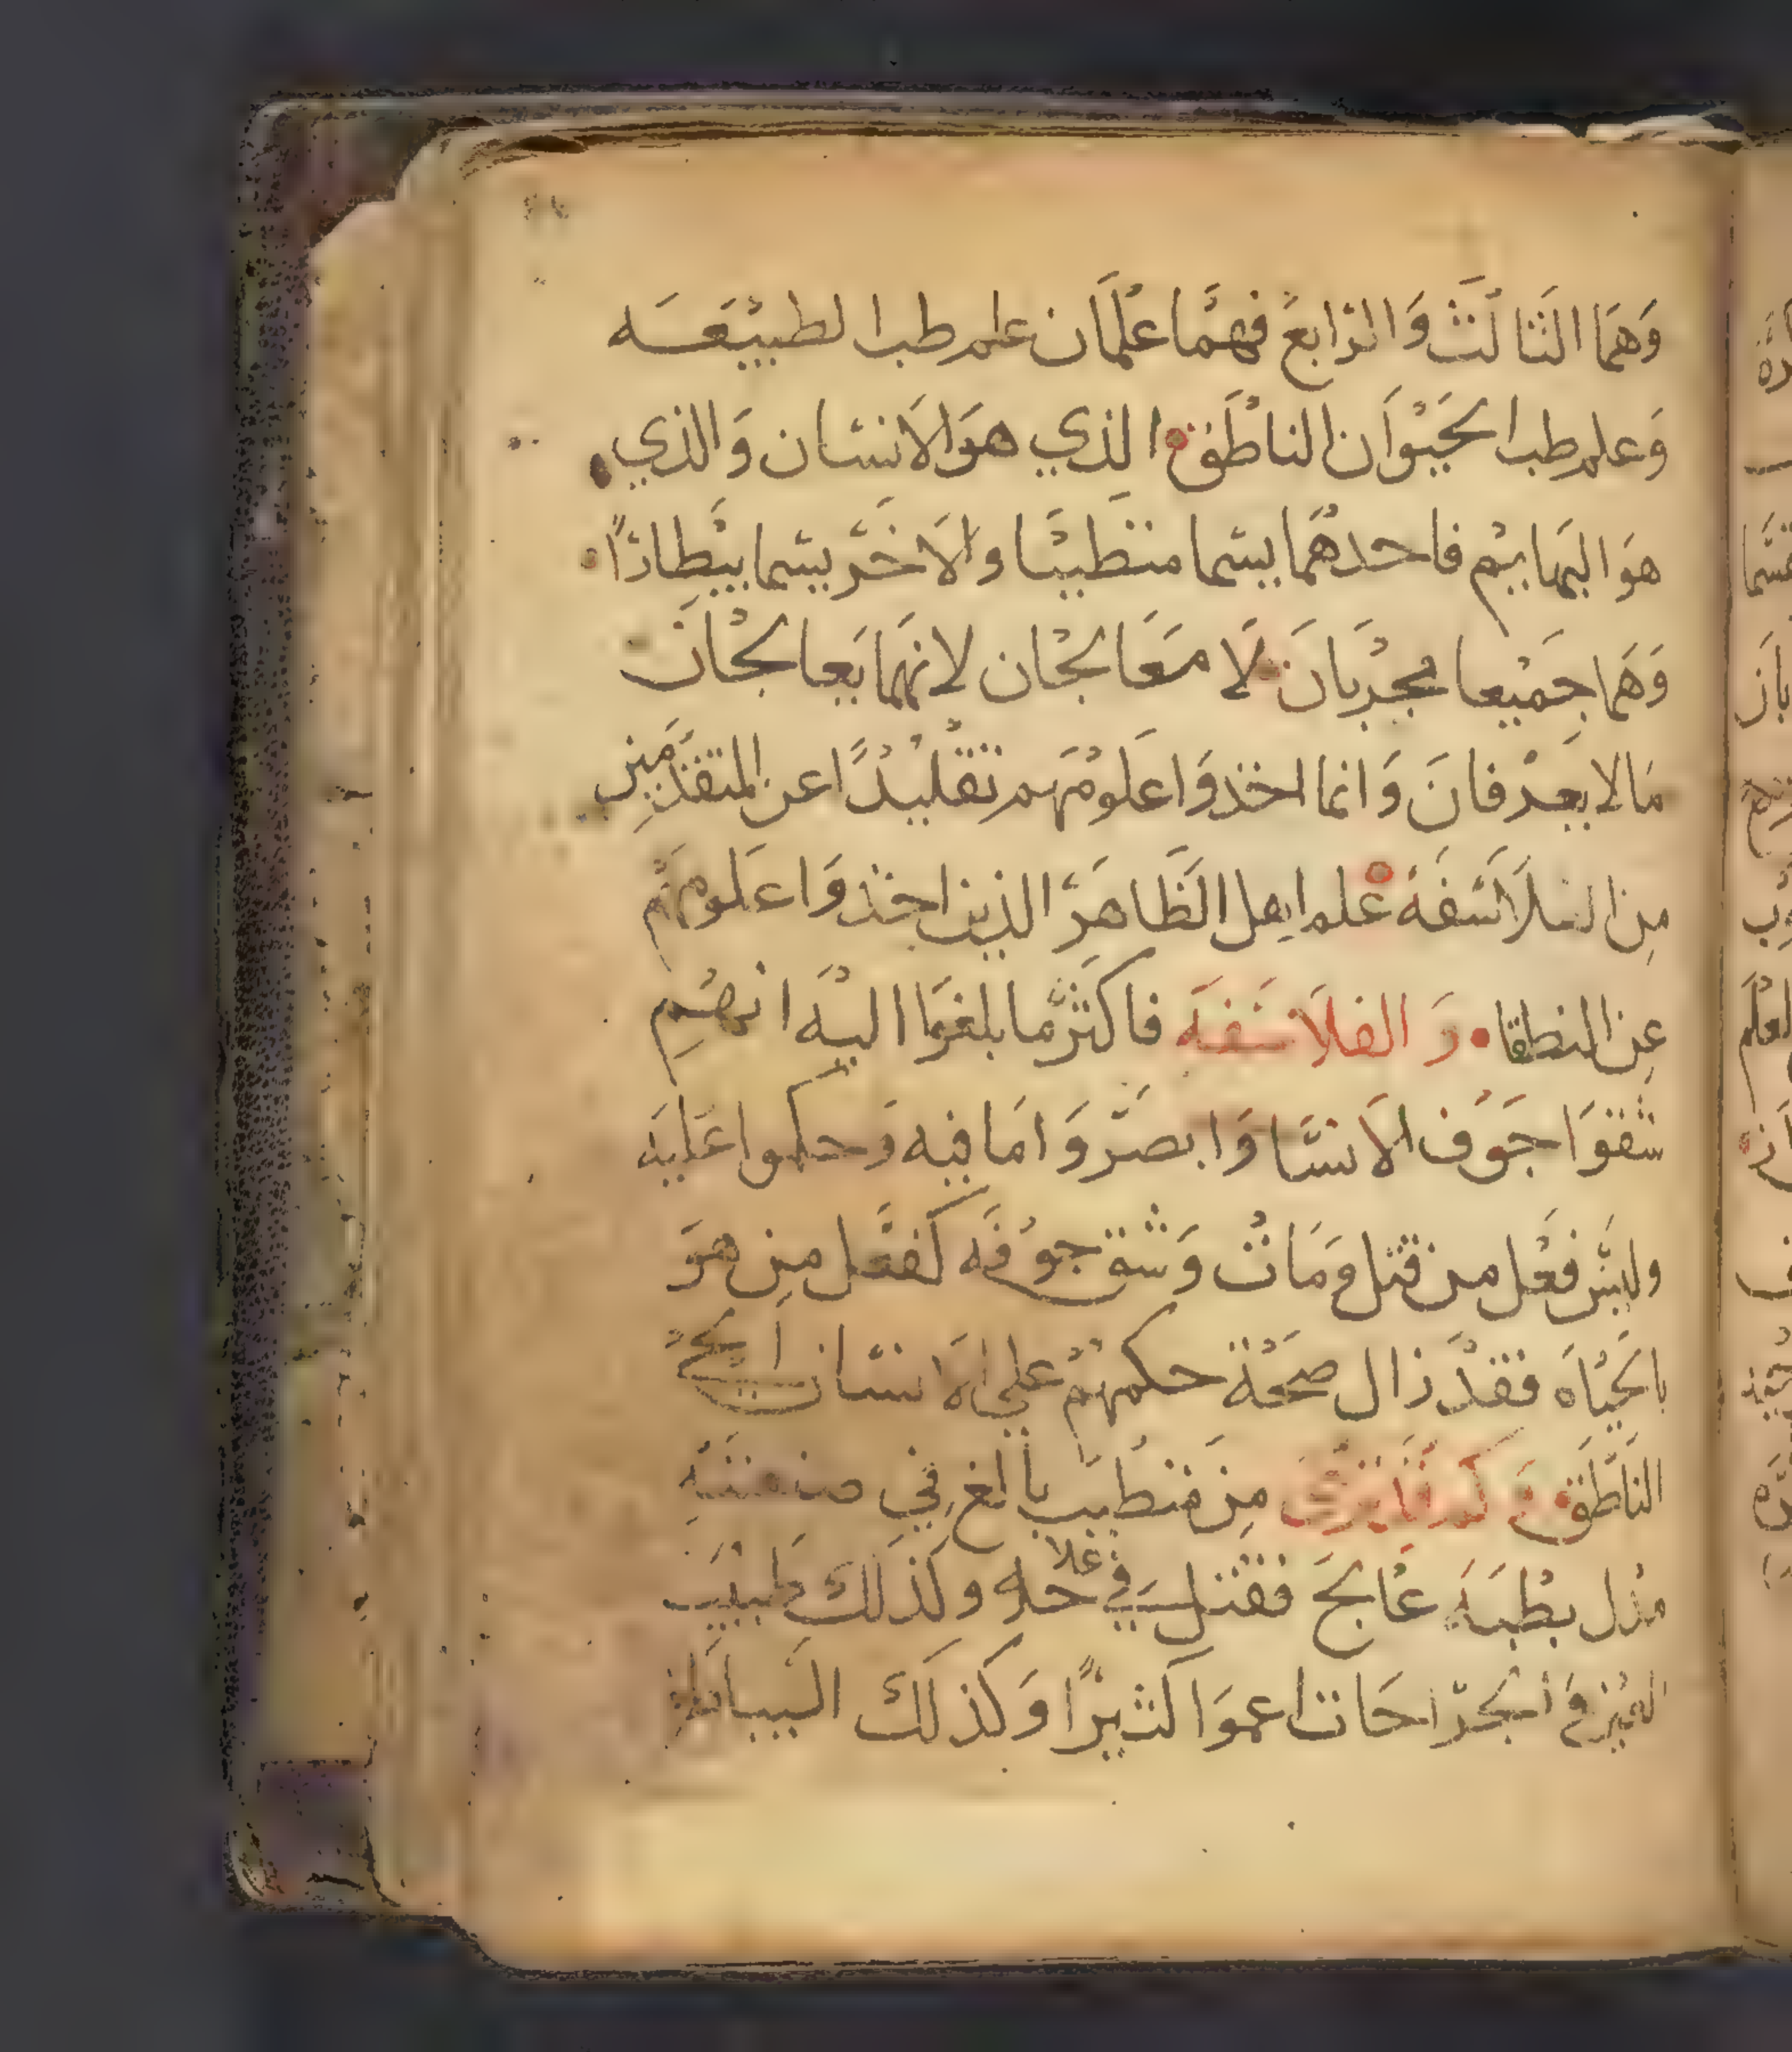 وَهمَا الثَالثْ وَالرَابعْ فهمَا علمَان علم طب الطبيعَه
وَعلم طب الحَيوَان الناطَق الذي هوَ الانسَان وَالذي
هوَ البهَايم فاحدهُمَا يسَما متطَيبًا والاخَر يسَما بيطارًا
وَهمَا جَميعا مجربَان لَا معَالجَان لانهما يعالجَان
مَالا يعرفانَ وَانما اخذوَا علومَهم تقليدًا عن المتقدمَين
مِن السلاَسَفَه علم اهل الظَاهَر الذين اخذوَا علومَهم
عن النطقا وَ الفلاسَفَه فاكثر ما بلغوَا اليَه انهُم
شقوَا جوَف الانسَا وَابصَروَا مَا فيه وَحكموا علَيه
وليسَ فعَل من قتل ومَات وَشق جوفَه كفعَل من هوَ
بالحَيَاه فقد زال صحَة حكمهمْ على الانسَان الحي
الناطَق وَكم قَد نرى مِن متطَيب بالغ في صنعتهِ
مدل بطبَه عَالج فقتل في حله وكذلكَ طبيب
العين وَ الجرَاحَات اعموَا كثيرًا وَكذلكَ البيَاطره